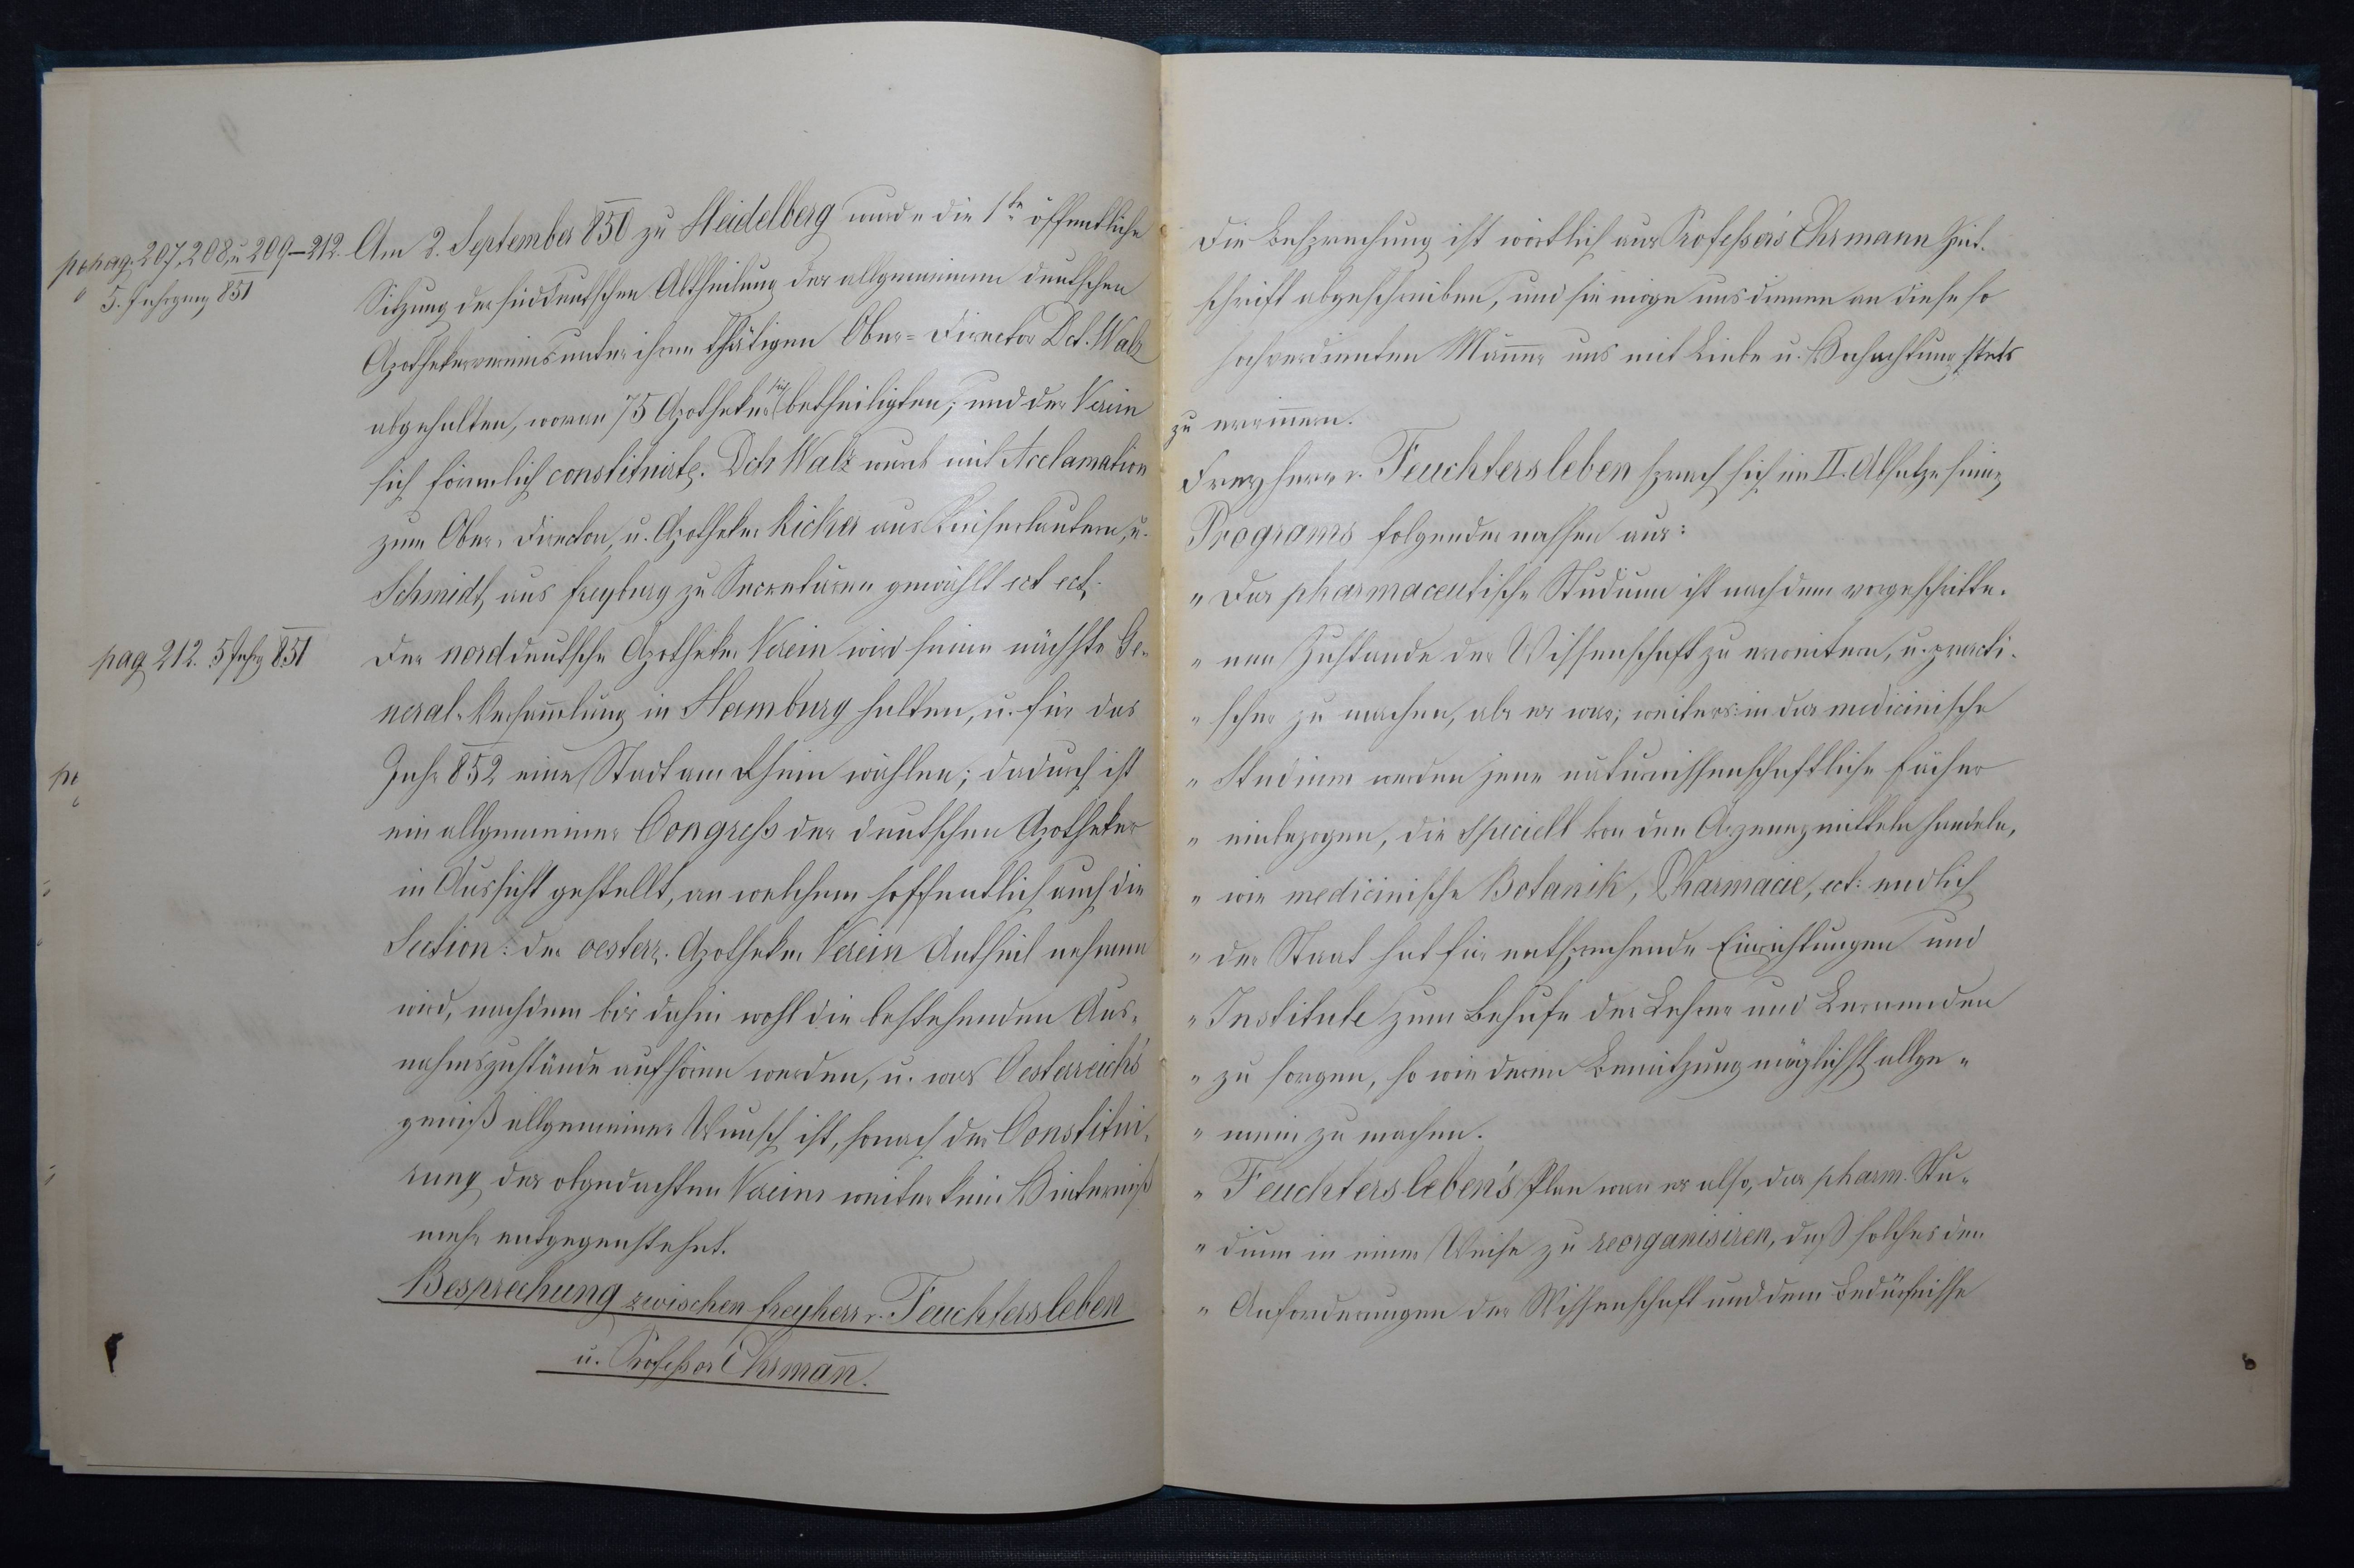 pag. 207, 208, u 209–212.
" 5. Jahrgang 851
Am 2. September 850 zu Heidelberg wurde die 1te öffentliche
Sitzung der süddeutschen Abtheilung des allgemeinen deutschen
Apothekervereins unter ihrem thätigen Ober=Director Dct. Walz
abgehalten, woran 75 Apotheker sich betheiligten; und der Verein
sich förmlich constituirte. Dctr Walz wurde mit Acclamation
zum Ober=Director, u. Apotheker Ricker aus Kaiserlautern, u.
Schmidt, aus Freyburg zu Secretären gewählt ect ect.
pag 212. 5 Jahrg 851
Der norddeutsche Apotheker Verein wird seine nächste Ge-
neral-Versam̄lung in Hamburg halten, u. für das
Jahr 852 eine Stadt am Rhein wählen; dadurch ist
ein allgemeiner Congreß der deutschen Apotheker
in Aussicht gestellt, an welchem hoffentlich auch die
Section: der oesterr. Apotheker Verein Antheil nehmen
wird, nachdem bis dahin wohl die bestehenden Aus-
nahmszustände aufhören werden, u. was Oesterreich's
gewiß allgemeiner Wunsch ist, sonach der Constitui-
rung des obgedachten Vereins weiter kein Hinderniß
mehr entgegensteht.
Besprechung zwischen Freyherr v. Feuchtersleben
u. Professor Ehrman̄.
Die Besprechung ist wörtlich aus Professor's Ehrmann Zeit-
schrift abgeschrieben, und sie möge uns dienen an diese so
hochverdienten Män̄er uns mit Liebe u. Hochachtung stets
zu erin̄ern.
Freyherr v. Feuchtersleben sprach sich im II. Absatze seines
Programs folgender massen aus:
" Das pharmaceutische Studium ist nach dem vorgeschritte-
" nen Zustande der Wissenschaft zu erweitern, u. practi-
" scher zu machen, als es war; weiters: in das medicinische
" Studium werden jene naturwissenschaftliche Fächer
" einbezogen, die speciell von den Arzneymitteln handeln,
" wie medicinische Botanik, Pharmacie, ect: endlich
" der Staat hat für entsprechende Einrichtungen und
" Institute zum Behufe der Lehrer und Lernenden
" zu sorgen, so wie deren Benützung möglichst allge-
" mein zu machen.
" Feuchtersleben's Plan war es also, das pharm. Stu-
" dium in einer Weise zu reorganisiren, daß solches den
" Anforderungen der Wissenschaft und dem Bedürfnisse